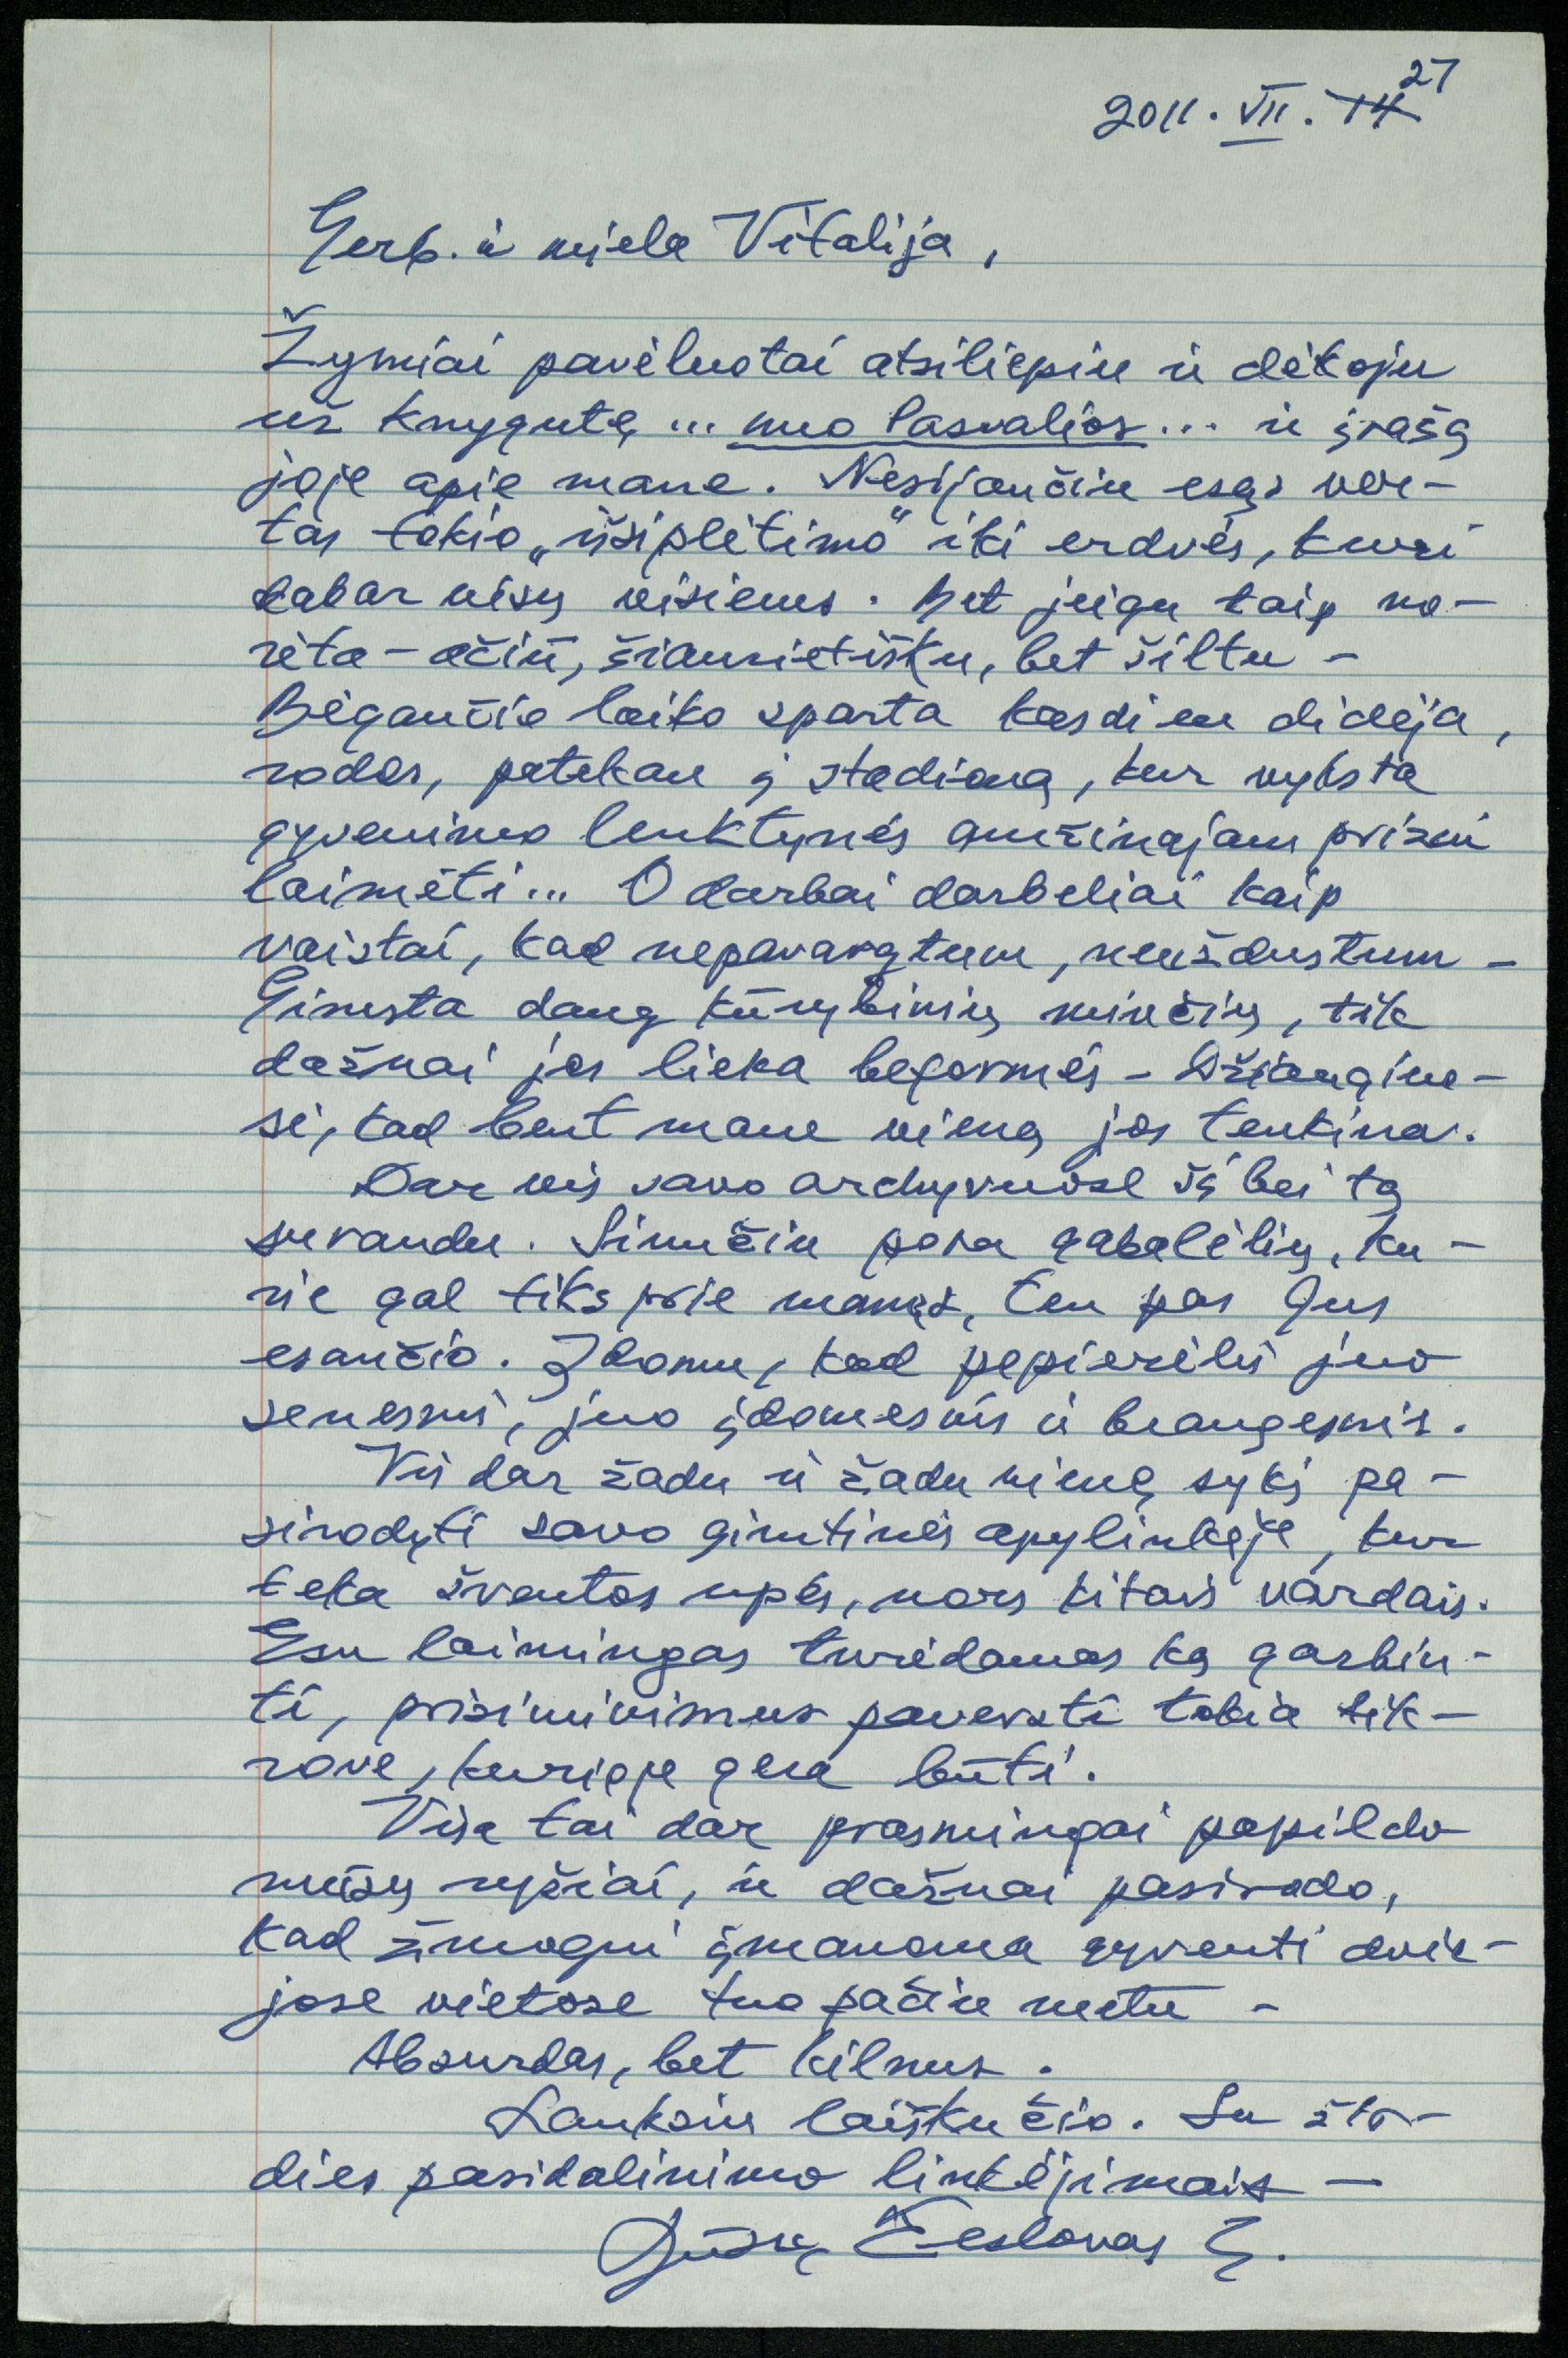 2011. VII. 14 27
Gerb. ir miela Vitalija,
Žymiai pavėluotai atsiliepiu ir dėkoju
už knygutę ... nuo Pasvalios ... ir įrašą
joje apie mane. Nesijaučiu esąs ver-
tas tokio „išsiplėtimo“ iki erdvės, kuri
dabar visų visiems. Bet jeigu taip no-
rėta - ačiū, šiaurietišku, bet šiltu -
Bėgančio laiko sparta kasdien didėja,
rodos, patekau į stadioną, kur vyksta
gyvenimo lenktynės amžinajam prizui
laimėti... O darbai darbeliai kaip
vaistai, kad nepavargtum, neuždustum -
Gimsta daug kūrybinių minčių, tik
dažnai jos lieka beformės - Džiaugiuo-
si, kad bent mane vieną jos tenkina.
Dar vis savo archyvuose šį bei tą
surandu. Siunčiu pora gabalėlių, ku-
rie gal tiks prie manęs, ten pas Jus
esančio. Įdomu, kad popierėlis juo
senesnis, juo įdomesnis ir brangesnis.
Vis dar žadu ir žadu vieną sykį pa-
sirodyti savo gimtinės apylinkėje, kur
teka šventos upės, nors kitais vardais.
Esu laimingas turėdamas ką garbin-
ti, prisiminimus paversti tokia tik-
rove, kurioje gera būti.
Visa tai dar prasmingai papildo
mūsų ryšiai, ir dažnai pasirodo,
kad žmogui įmanoma gyventi dvie-
jose vietose tuo pačiu metu -
Absurdas, bet kilnus.
Lauksiu laiškučio. Su žo-
dies pasidalinimo linkėjimais -
Jūsų Česlovas